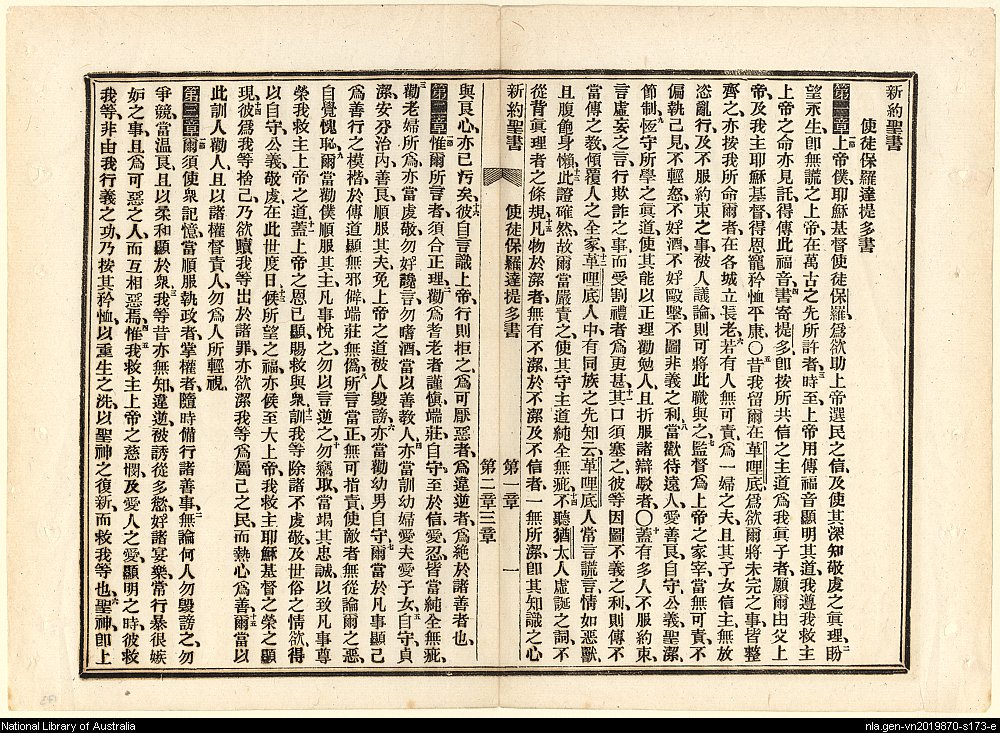 新約聖書
使徒保羅達提多書
第一章 上帝僕耶穌基督使徒保羅爲欲助上帝選民之信及使其深知敬虔之眞理、二盼
望永生卽無謊之上帝在萬古之先所許者、三時至上帝用傳福音顯明其道我遵我救主
上帝之命亦見託得傳此福音四書寄提多卽按所共信之主道爲我眞子者願爾由父上
帝及我主耶穌基督得恩寵矜恤平康〇五昔我留爾在革哩底爲欲爾將未完之事皆整
齊之亦按我所命爾者在各城立長老六若有人無可責爲一婦之夫且其子女信主無放
恣亂行及不服約束之事被人議論則可將此職與之七監督爲上帝之家宰當無可責不
偏執己見不輕怒不好酒不好毆擊不圖非義之利八當歡待遠人愛善良自守公義聖潔
節制九恆守所學之眞道使其能以正理勸勉人且折服諸辯駁者〇十蓋有多人不服約束
言虛妄之言行欺詐之事而受割禮者爲更甚十一其口須塞之彼等因圖不義之利則傳不
當傳之教傾覆人之全家十二革哩底人中有同族之先知云革哩底人常言謊言情如惡獸
且腹飽身懶十三此證確然故爾當嚴責之使其守主道純全無疵十四不聽猶太人虛誕之詞不
從背眞理者之條規十五凡物於潔者無有不潔於不潔及不信者一無所潔卽其知識之心
新約聖書 使徒保羅達提多書 第一章 一
第二章三章
與良心亦已污矣十六彼自言識上帝行則拒之爲可厭惡者爲違逆者爲絕於諸善者也
第二章 惟爾所言者須合正理二勸爲耆老者謹愼端莊自守至於信愛忍皆當純全無疵
三勸老婦所爲亦當虔敬勿好讒言勿嗜酒當以善教人四亦當訓幼婦愛夫愛子女五自守貞
潔安分治內善良順服其夫免上帝之道被人毀謗六亦當勸幼男自守七爾當於凡事顯己
爲善行之模楷於傳道顯無邪僻端莊無僞八所言當正無可指責使敵者無從論爾之惡
自覺愧恥九爾當勸僕順服其主凡事悅之勿以言逆之十勿竊取當竭其忠誠以致凡事尊
榮我救主上帝之道十一蓋上帝之恩已顯賜救與衆十二訓我等除諸不虔敬及世俗之情欲得
以自守公義敬虔在此世度日十三候所望之福亦候至大上帝我救主耶穌基督之榮之顯
現十四彼爲我等捨己乃欲贖我等出於諸罪亦欲潔我等爲屬己之民而熱心爲善十五爾當以
此訓人勸人且以諸權督責人勿爲人所輕視
第三章 爾須使衆記憶當順服執政者掌權者隨時備行諸善事二無論何人勿毀謗之勿
爭競當溫良且以柔和顯於衆三我等昔亦無知違逆被誘從多慾好諸宴樂常行暴很嫉
妬之事且爲可惡之人而互相惡焉四惟我救主上帝之慈憫及愛人之愛顯明之時五彼救
我等非由我行義之功乃按其矜恤以重生之洗以聖神之復新而救我等也六聖神卽上
National Library of Australia
nla.gen-vn2019870-s173-e